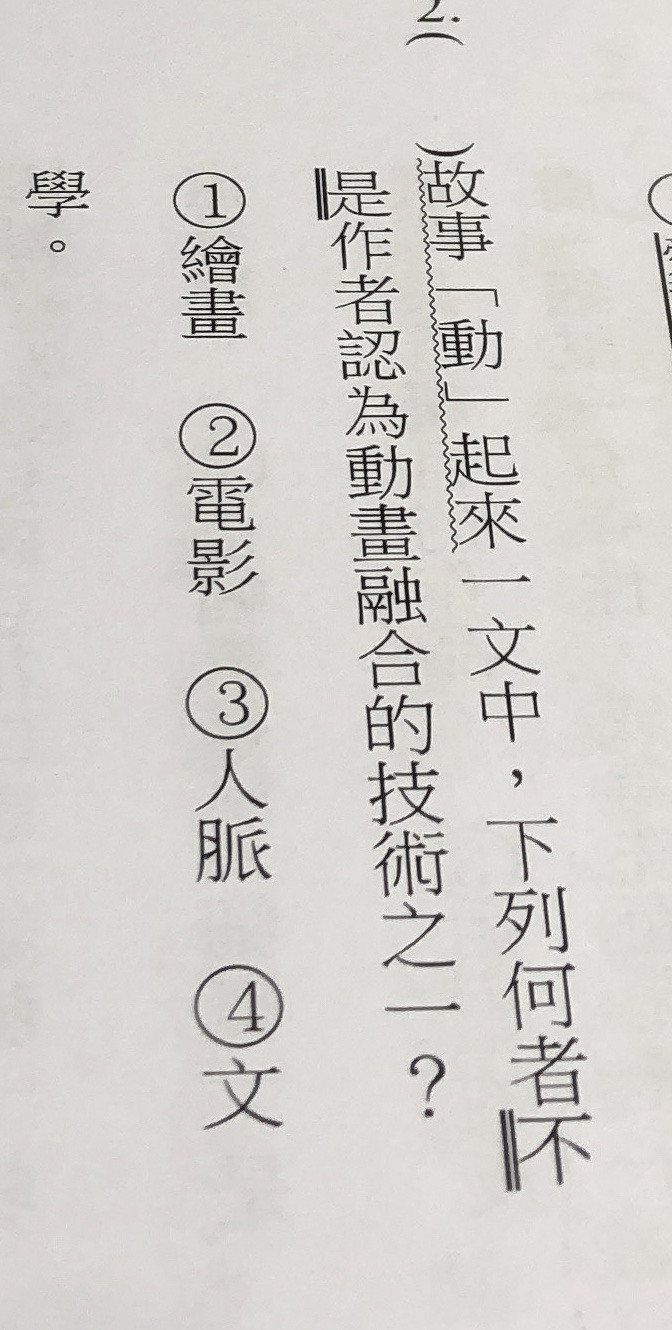 2.(　)故事「動」起來一文中，下列何者不
是作者認為動畫融合的技術之一？
①繪畫　②電影　③人脈　④文
學。